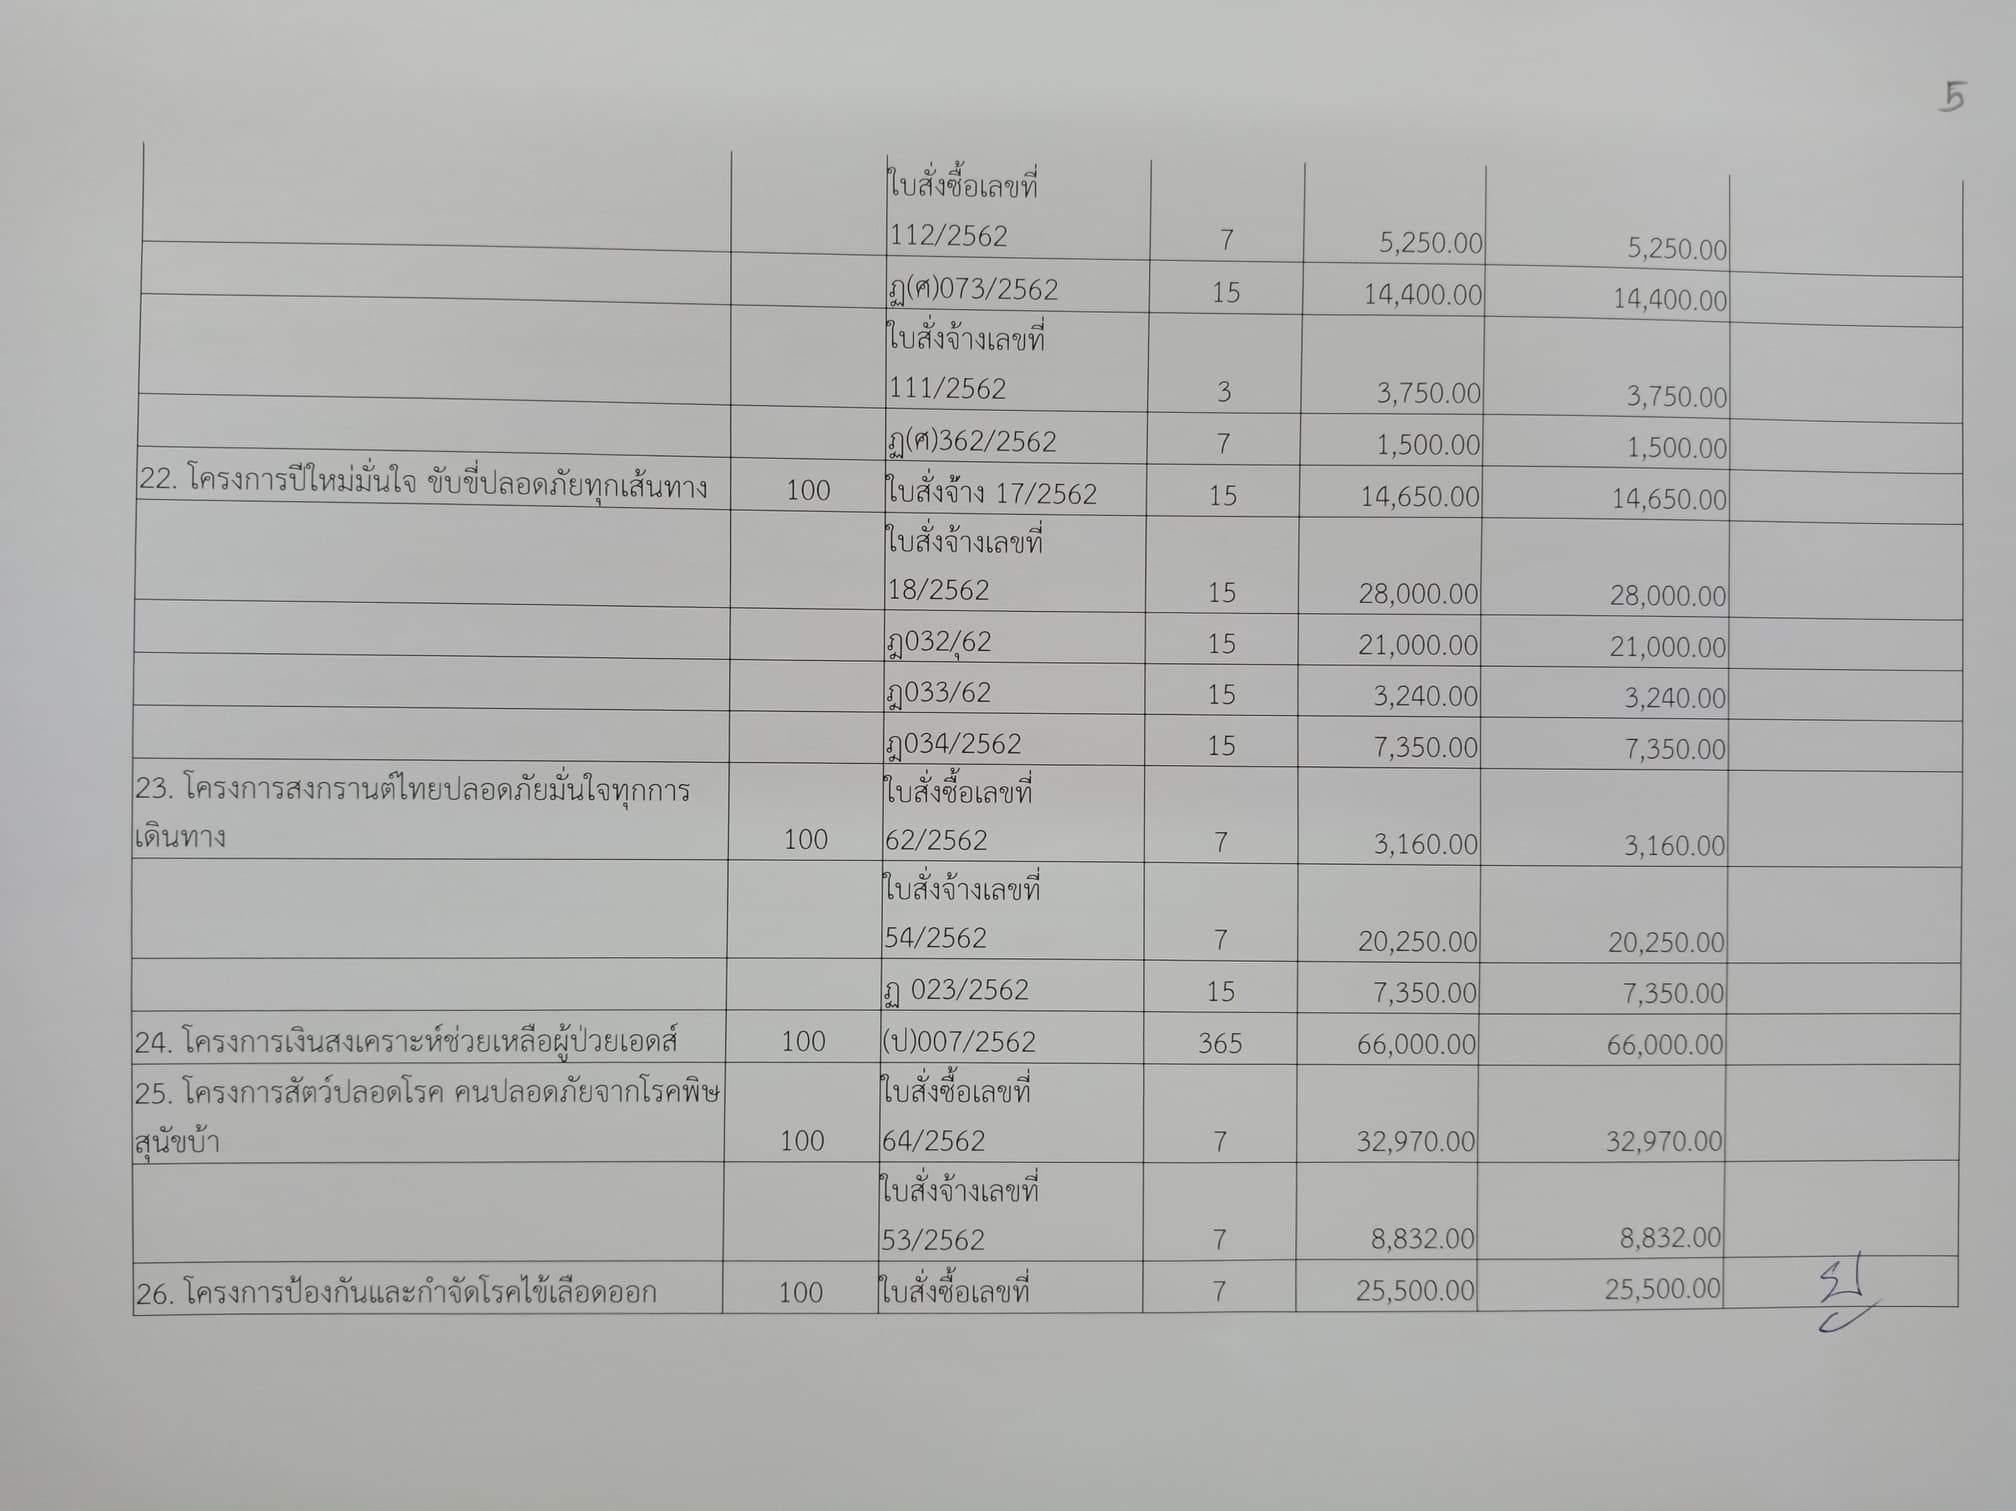 5
ใบสั่งซื้อเลขที่
112/2562 7 5,250.00 5,250.00
ฏ(ศ)073/2562 15 14,400.00 14,400.00
ใบสั่งจ้างเลขที่
111/2562 3 3,750.00 3,750.00
ฏ(ศ)362/2562 7 1,500.00 1,500.00
22. โครงการปีใหม่มั่นใจ ขับขี่ปลอดภัยทุกเส้นทาง 100 ใบสั่งจ้าง 17/2562 15 14,650.00 14,650.00
ใบสั่งจ้างเลขที่
18/2562 15 28,000.00 28,000.00
ฎ032/ุ62 15 21,000.00 21,000.00
ฎ033/62 15 3,240.00 3,240.00
ฎ034/2562 15 7,350.00 7,350.00
23. โครงการสงกรานต์ไทยปลอดภัยมั่นใจทุกการ ใบสั่งซื้อเลขที่
เดินทาง 100 62/2562 7 3,160.00 3,160.00
ใบสั่งจ้างเลขที่
54/2562 7 20,250.00 20,250.00
ฏ 023/2562 15 7,350.00 7,350.00
24. โครงการเงินสงเคราะห์ช่วยเหลือผู้ป่วยเอดส์ 100 (ป)007/2562 365 66,000.00 66,000.00
25. โครงการสัตว์ปลอดโรค คนปลอดภัยจากโรคพิษ ใบสั่งซื้อเลขที่
สุนัขบ้า 100 64/2562 7 32,970.00 32,970.00
ใบสั่งจ้างเลขที่
53/2562 7 8,832.00 8,832.00
26. โครงการป้องกันและกำจัดโรคไข้เลือดออก 100 ใบสั่งซื้อเลขที่ 7 25,500.00 25,500.00